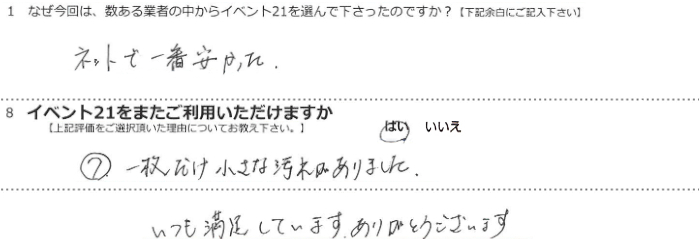 1 なぜ今回は、数ある業者の中からイベント21を選んで下さったのですか？【下記余白にご記入下さい】
ネットで一番安かった.
8 イベント21をまたご利用いただけますか
【上記評価をご選択頂いた理由についてお教え下さい。】
はい いいえ
⑦ 一枚だけ小さな汚れがありました.
いつも満足しています.ありがとうございます